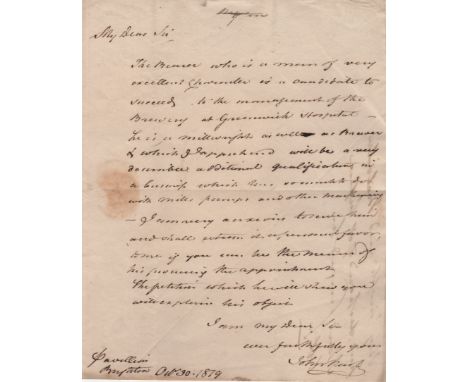 My Dear Sir
The Bearer who is a man of very
excellent Character is a candidate to
succeed to the management of the
Brewery at Greenwich Hospital —
he is a millwright as well as Brewer
& which I apprehend will be a very
desirable additional qualification in
a business which has so much to do
with mills pumps and other machinery
— I am very anxious to serve him
and shall esteem it a personal favor
to me if you can be the means of
his procuring the appointment
The petition which he will shew you
will explain his object
I am my Dear Sir
ever faithfully yours
John
Pavillion
Brighton Octr 30. 1819